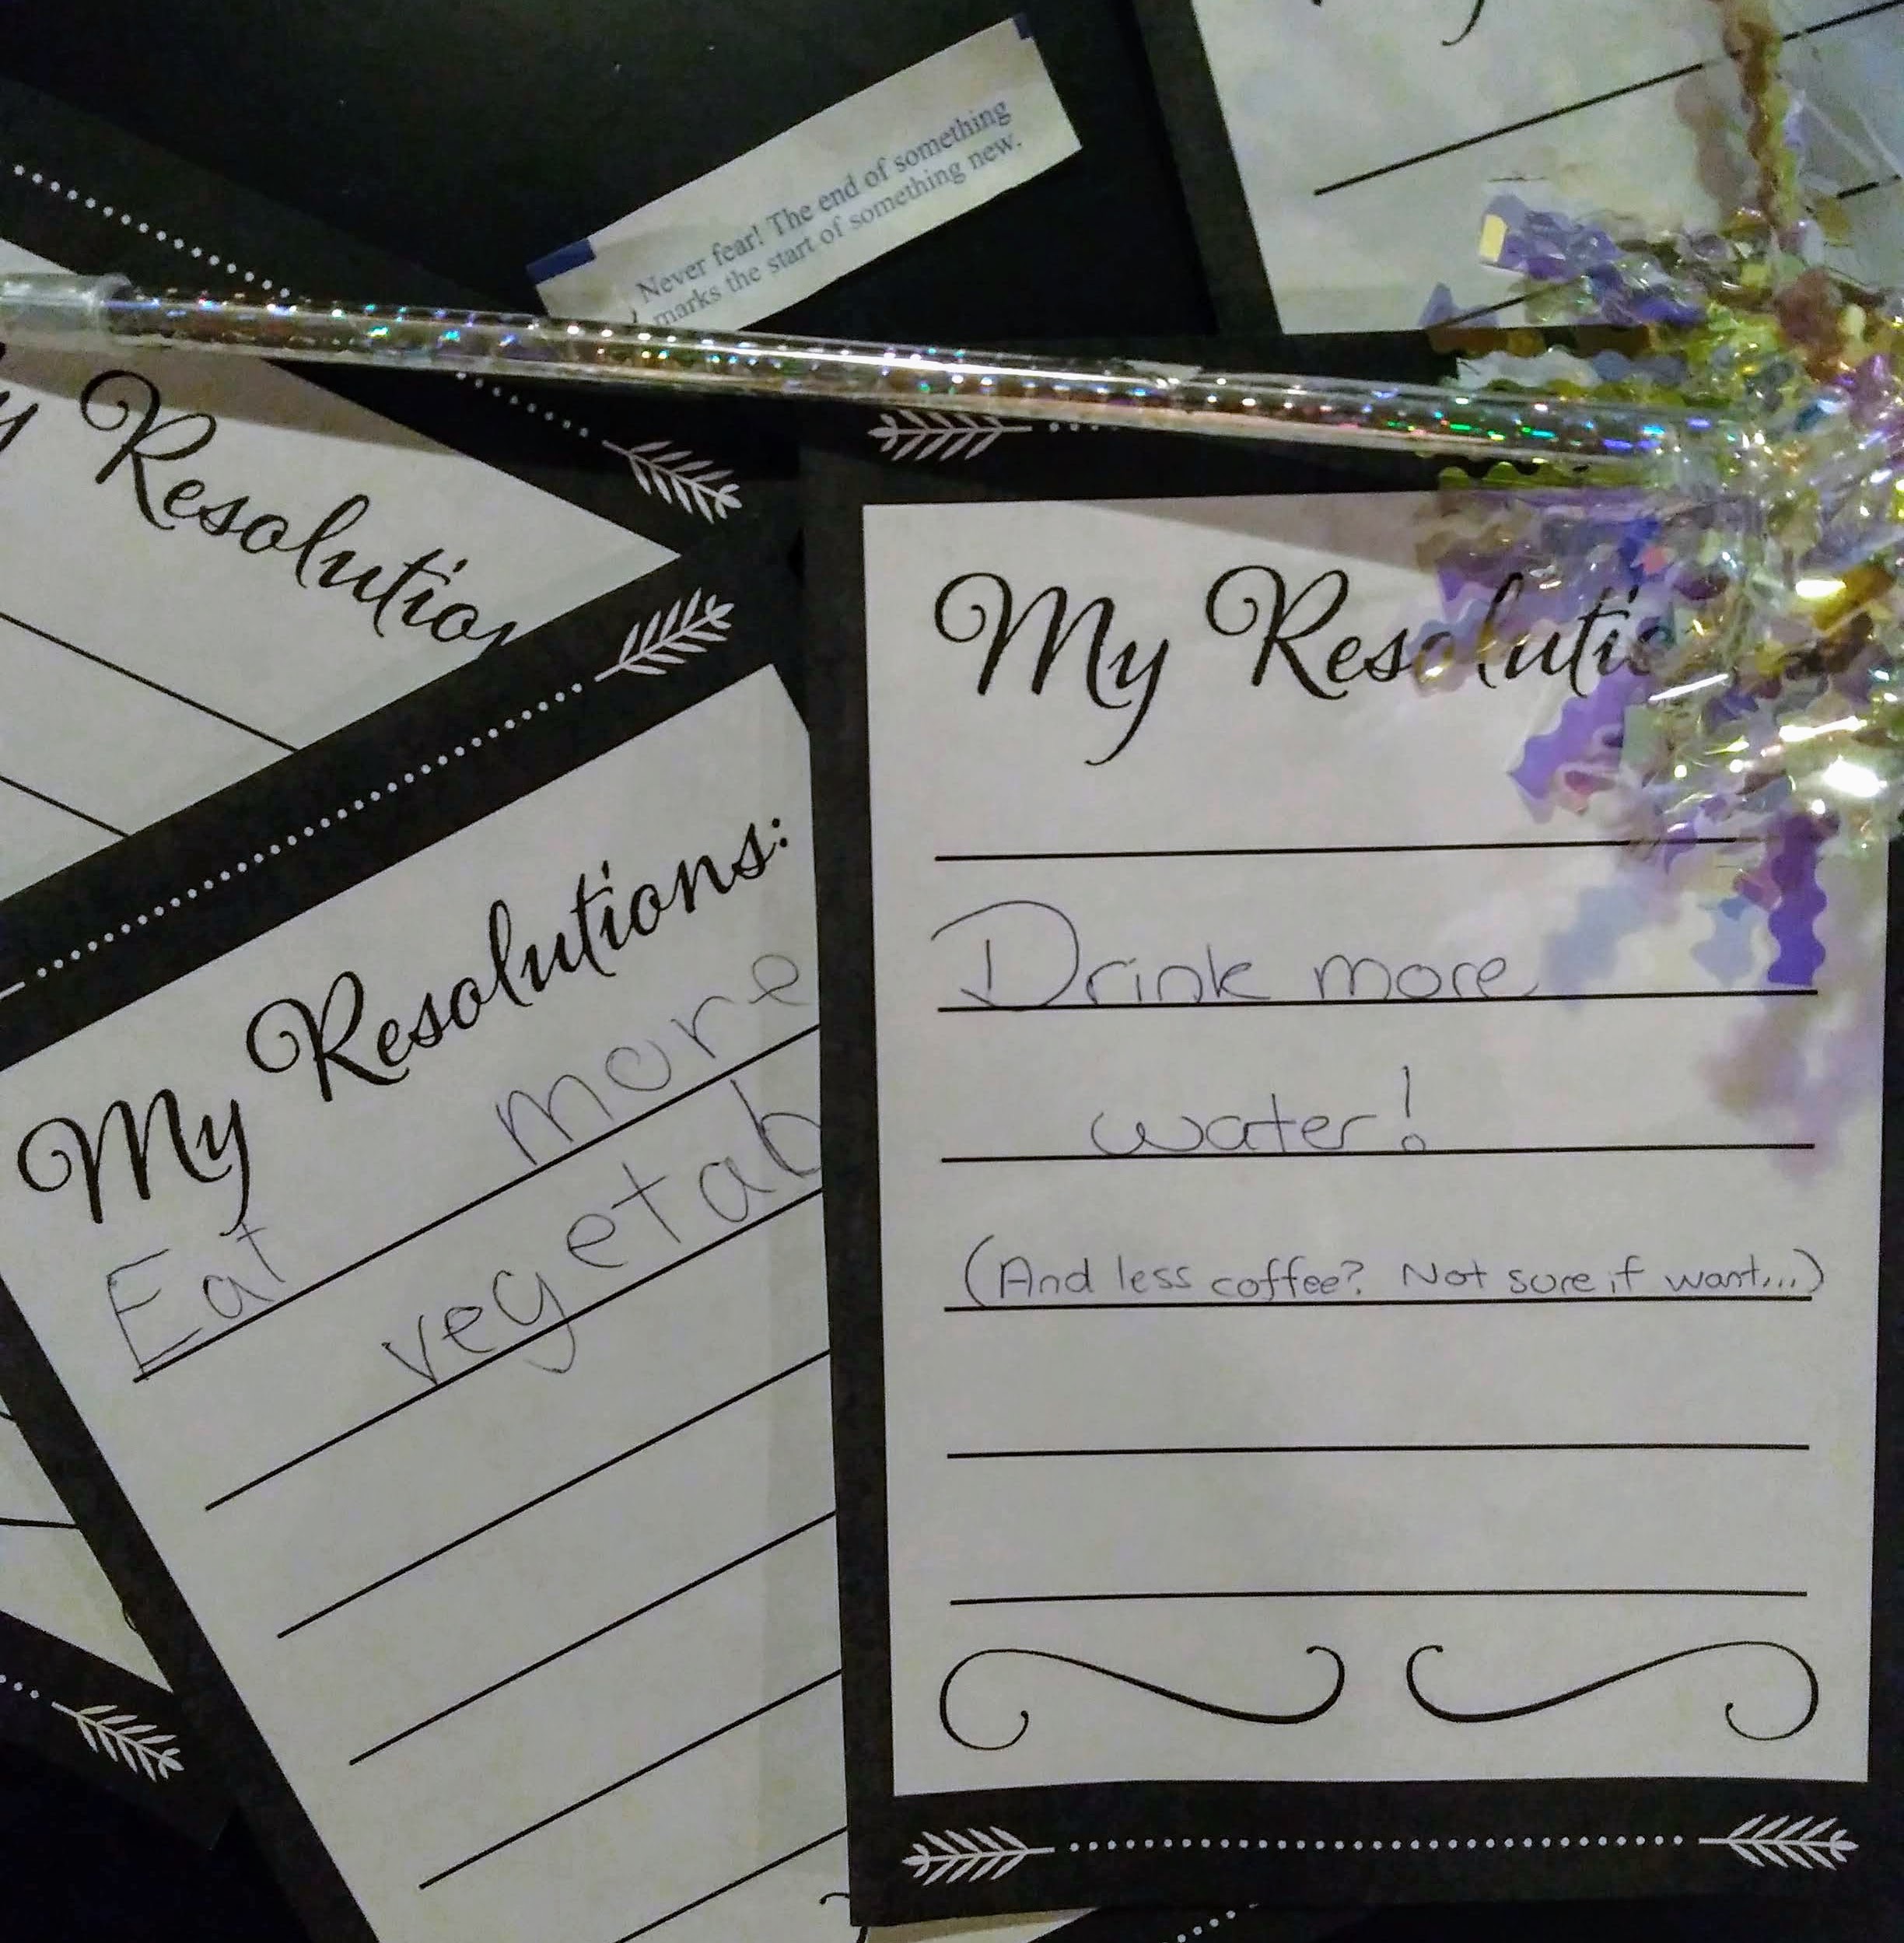 Never fear! The end of something
marks the start of something new.
y Resolution
My Resolutions:
Eat more
vegetab
My Resolutio
Drink more
water!
(And less coffee? Not sure if want...)